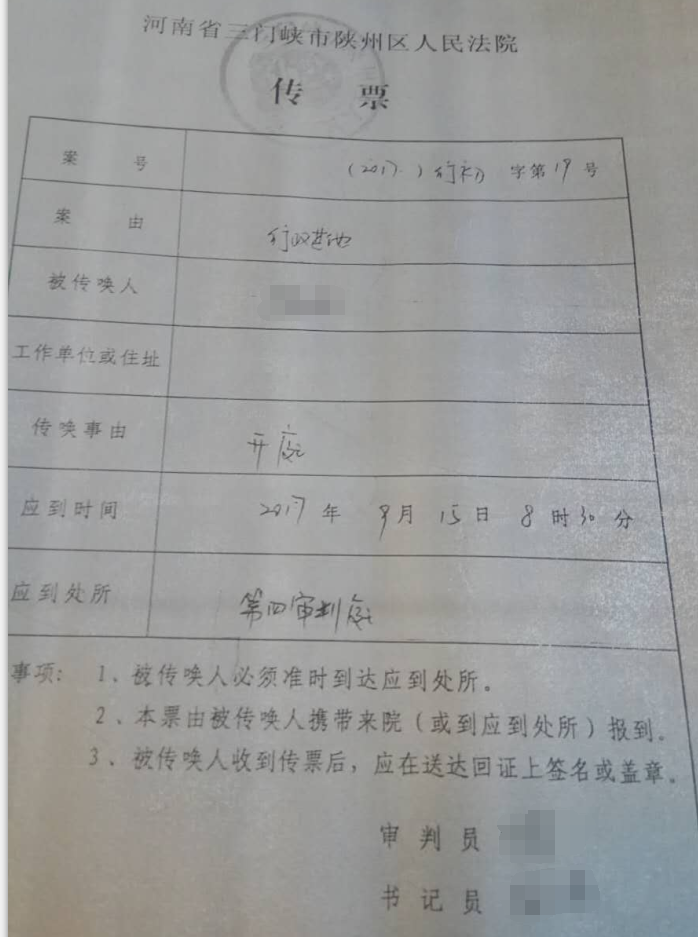 河南省三门峡市陕州区人民法院
传 票
案 号 (2017)行初 字第19号
案 由 行政其他
被传唤人
工作单位或住址
传唤事由 开庭
应到时间 2017年 9月 15日 8时30分
应到处所 第四审判庭
事项: 1、被传唤人必须准时到达应到处所。
2、本票由被传唤人携带来院(或到应到处所)报到。
3、被传唤人收到传票后,应在送达回证上签名或盖章。
审 判 员
书 记 员